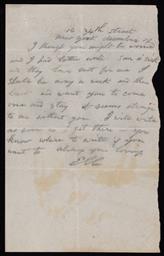 16 34th Street
New York December 12
I though you might be worried
and I had better write. Sam is sick
so they have sent for me. I
shall be away a week and then
and want you to come
over and stay. It seems strange
to me without you. I will write
as soon as I get there — you
know where to write if you
want to. Always your loving